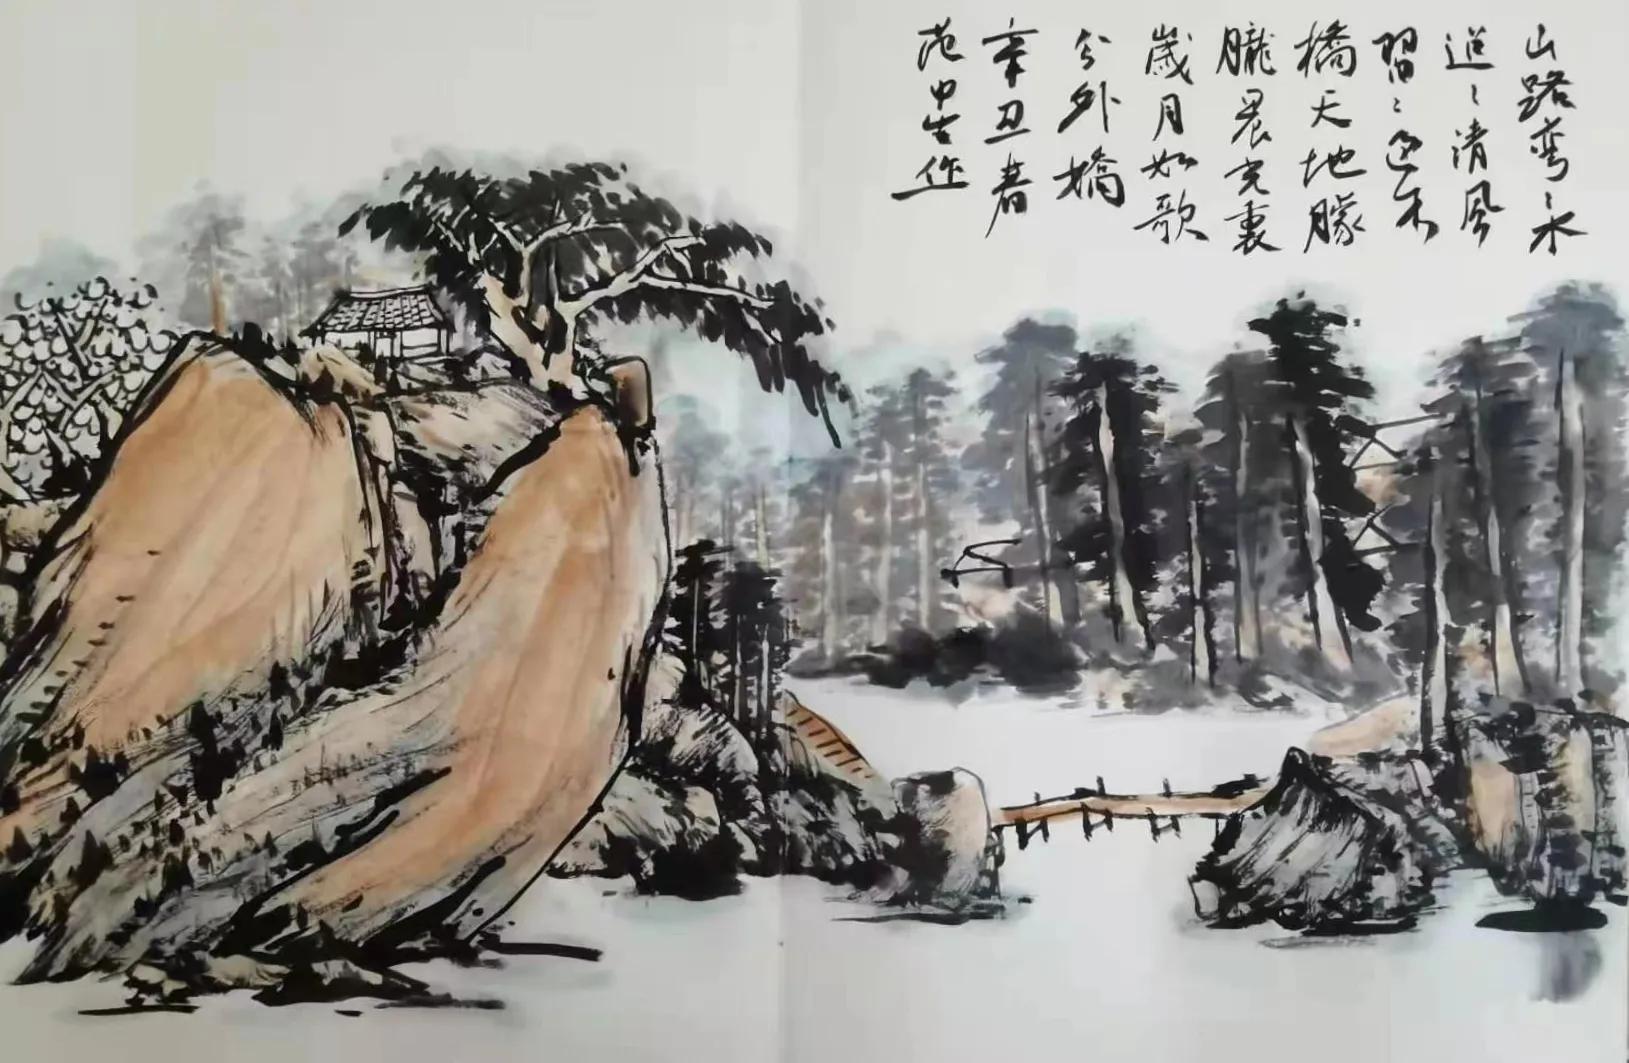 山路弯〻水
迢〻清风
習〻過木
橋天地朦
朧晨光裏
歲月如歌
分外嬌
辛丑春
范中生作